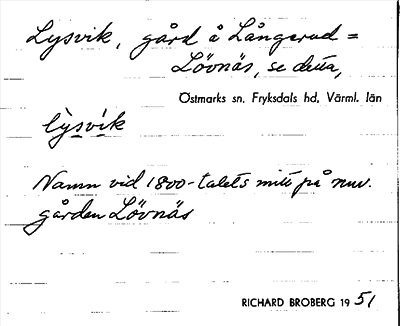 Lysvik, gård å Långerud =
Lövnäs, se detta,
Östmarks sn, Fryksdals hd, Värml. län
lỳsvik
Namn vid 1800-talets mitt på nuv.
gården Lövnäs
RICHARD BROBERG 1951